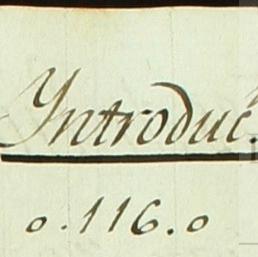 Introduc.
o.116.o